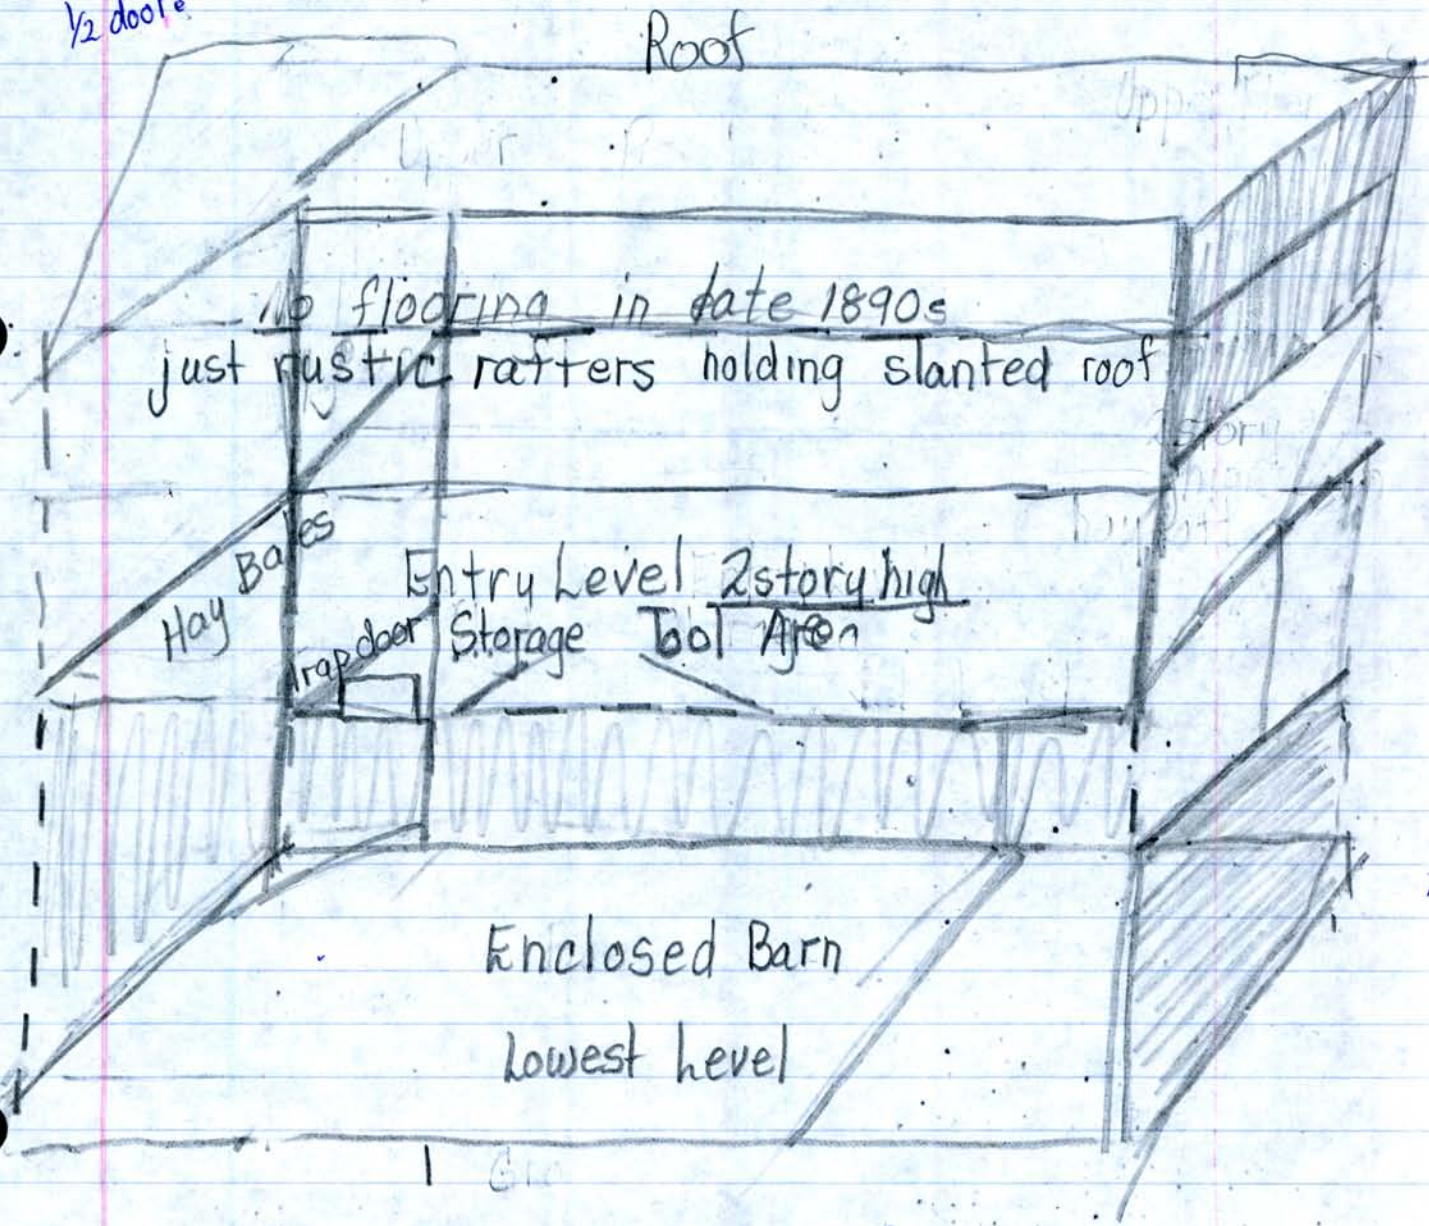 1/2 door
Roof
no flooring in late 1890s
just rustic rafters holding slanted roof
Hay Bales
Entry Level 2 story high
Trap door
Storage Tool Area
Enclosed Barn
Lowest Level